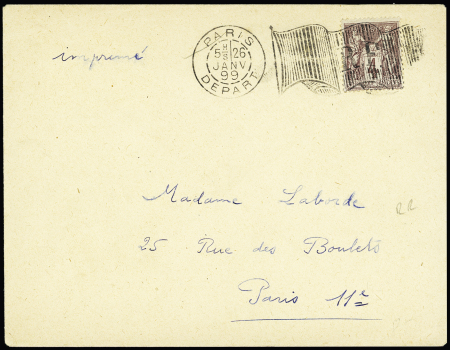 imprimé
PARIS
5 26
JANV
99
DEPART
4
Madame Laborde
25 Rue des Boulets
Paris 11e